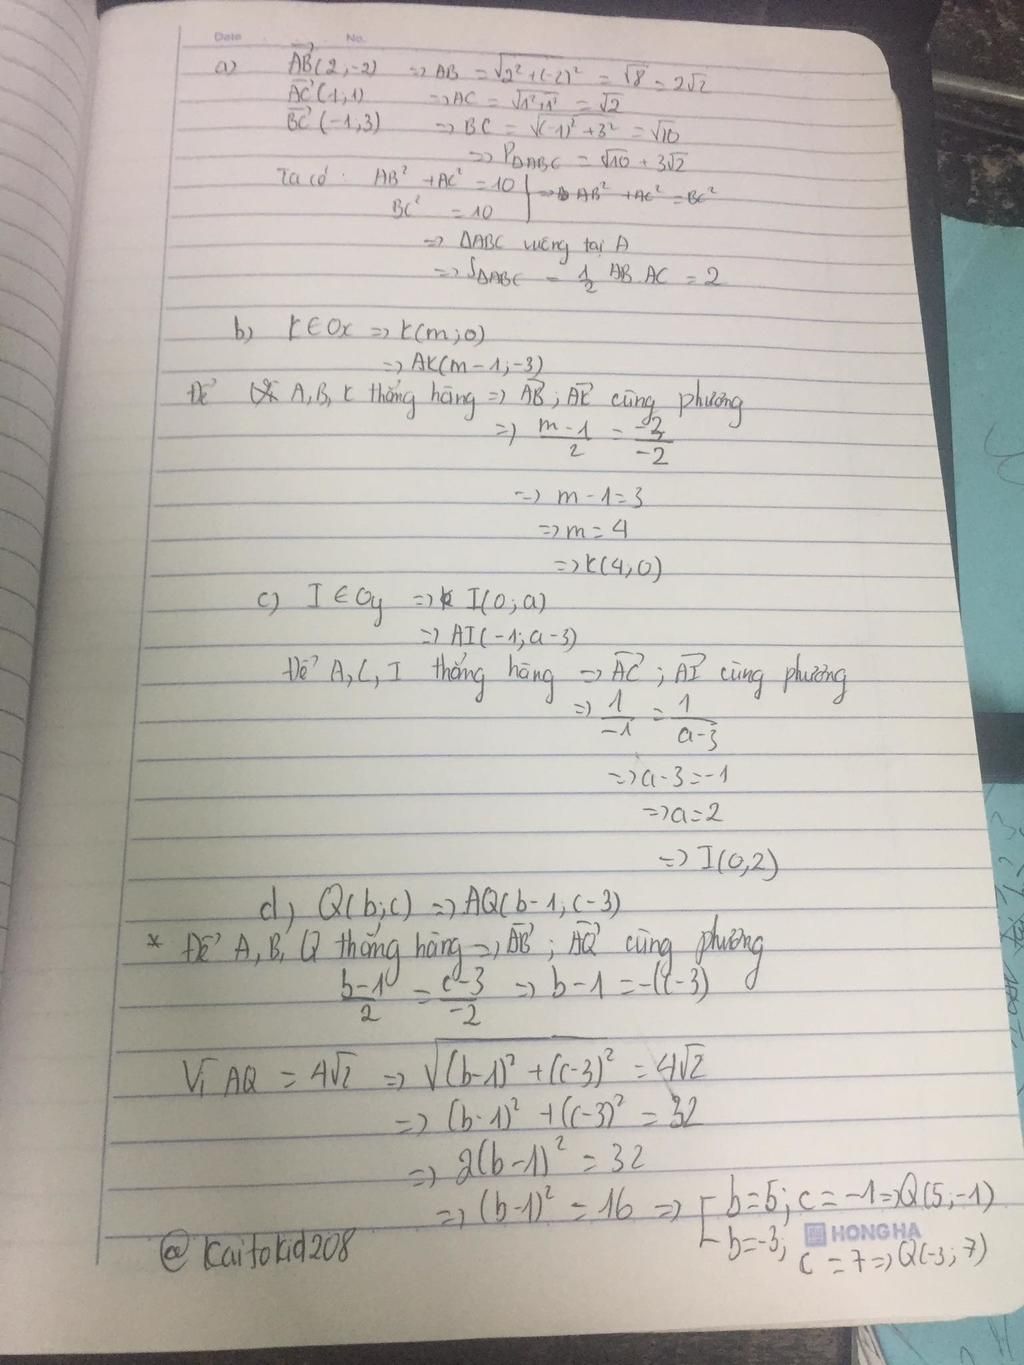 Date No.
a) AB(2;-2) => AB = √2²+(-2)² = √8 = 2√2
AC(1;1) => AC = √1²+1² = √2
BC(-1,3) => BC = √(-1)²+3² = √10
=> P∆ABC = √10 + 3√2
Ta có: AB² + AC² = 10 => AB² + AC² = BC²
BC² = 10
=> ∆ABC vuông tại A
=> S∆ABC = 1/2 AB.AC = 2
b) K∈Ox => K(m;0)
=> AK(m-1;-3)
Để A,B,K thẳng hàng => AB; AK cùng phương
=> m-1/2 = -3/-2
=> m-1=3
=> m=4
=> K(4;0)
c) I∈Oy => I(0;a)
=> AI(-1;a-3)
Để A,C,I thẳng hàng => AC; AI cùng phương
=> 1/-1 = 1/a-3
=> a-3=-1
=> a=2
=> I(0,2)
d) Q(b;c) => AQ(b-1;c-3)
* Để A,B,Q thẳng hàng => AB; AQ cùng phương
b-1/2 = c-3/-2 => b-1=-(c-3)
Vì AQ = 4√2 => √(b-1)²+(c-3)² = 4√2
=> (b-1)²+(c-3)² = 32
=> 2(b-1)² = 32
=> (b-1)² = 16 => [ b=5; c=-1 => Q(5;-1)
b=-3; c=7 => Q(-3;7)
HONG HA
@Kaitokid208